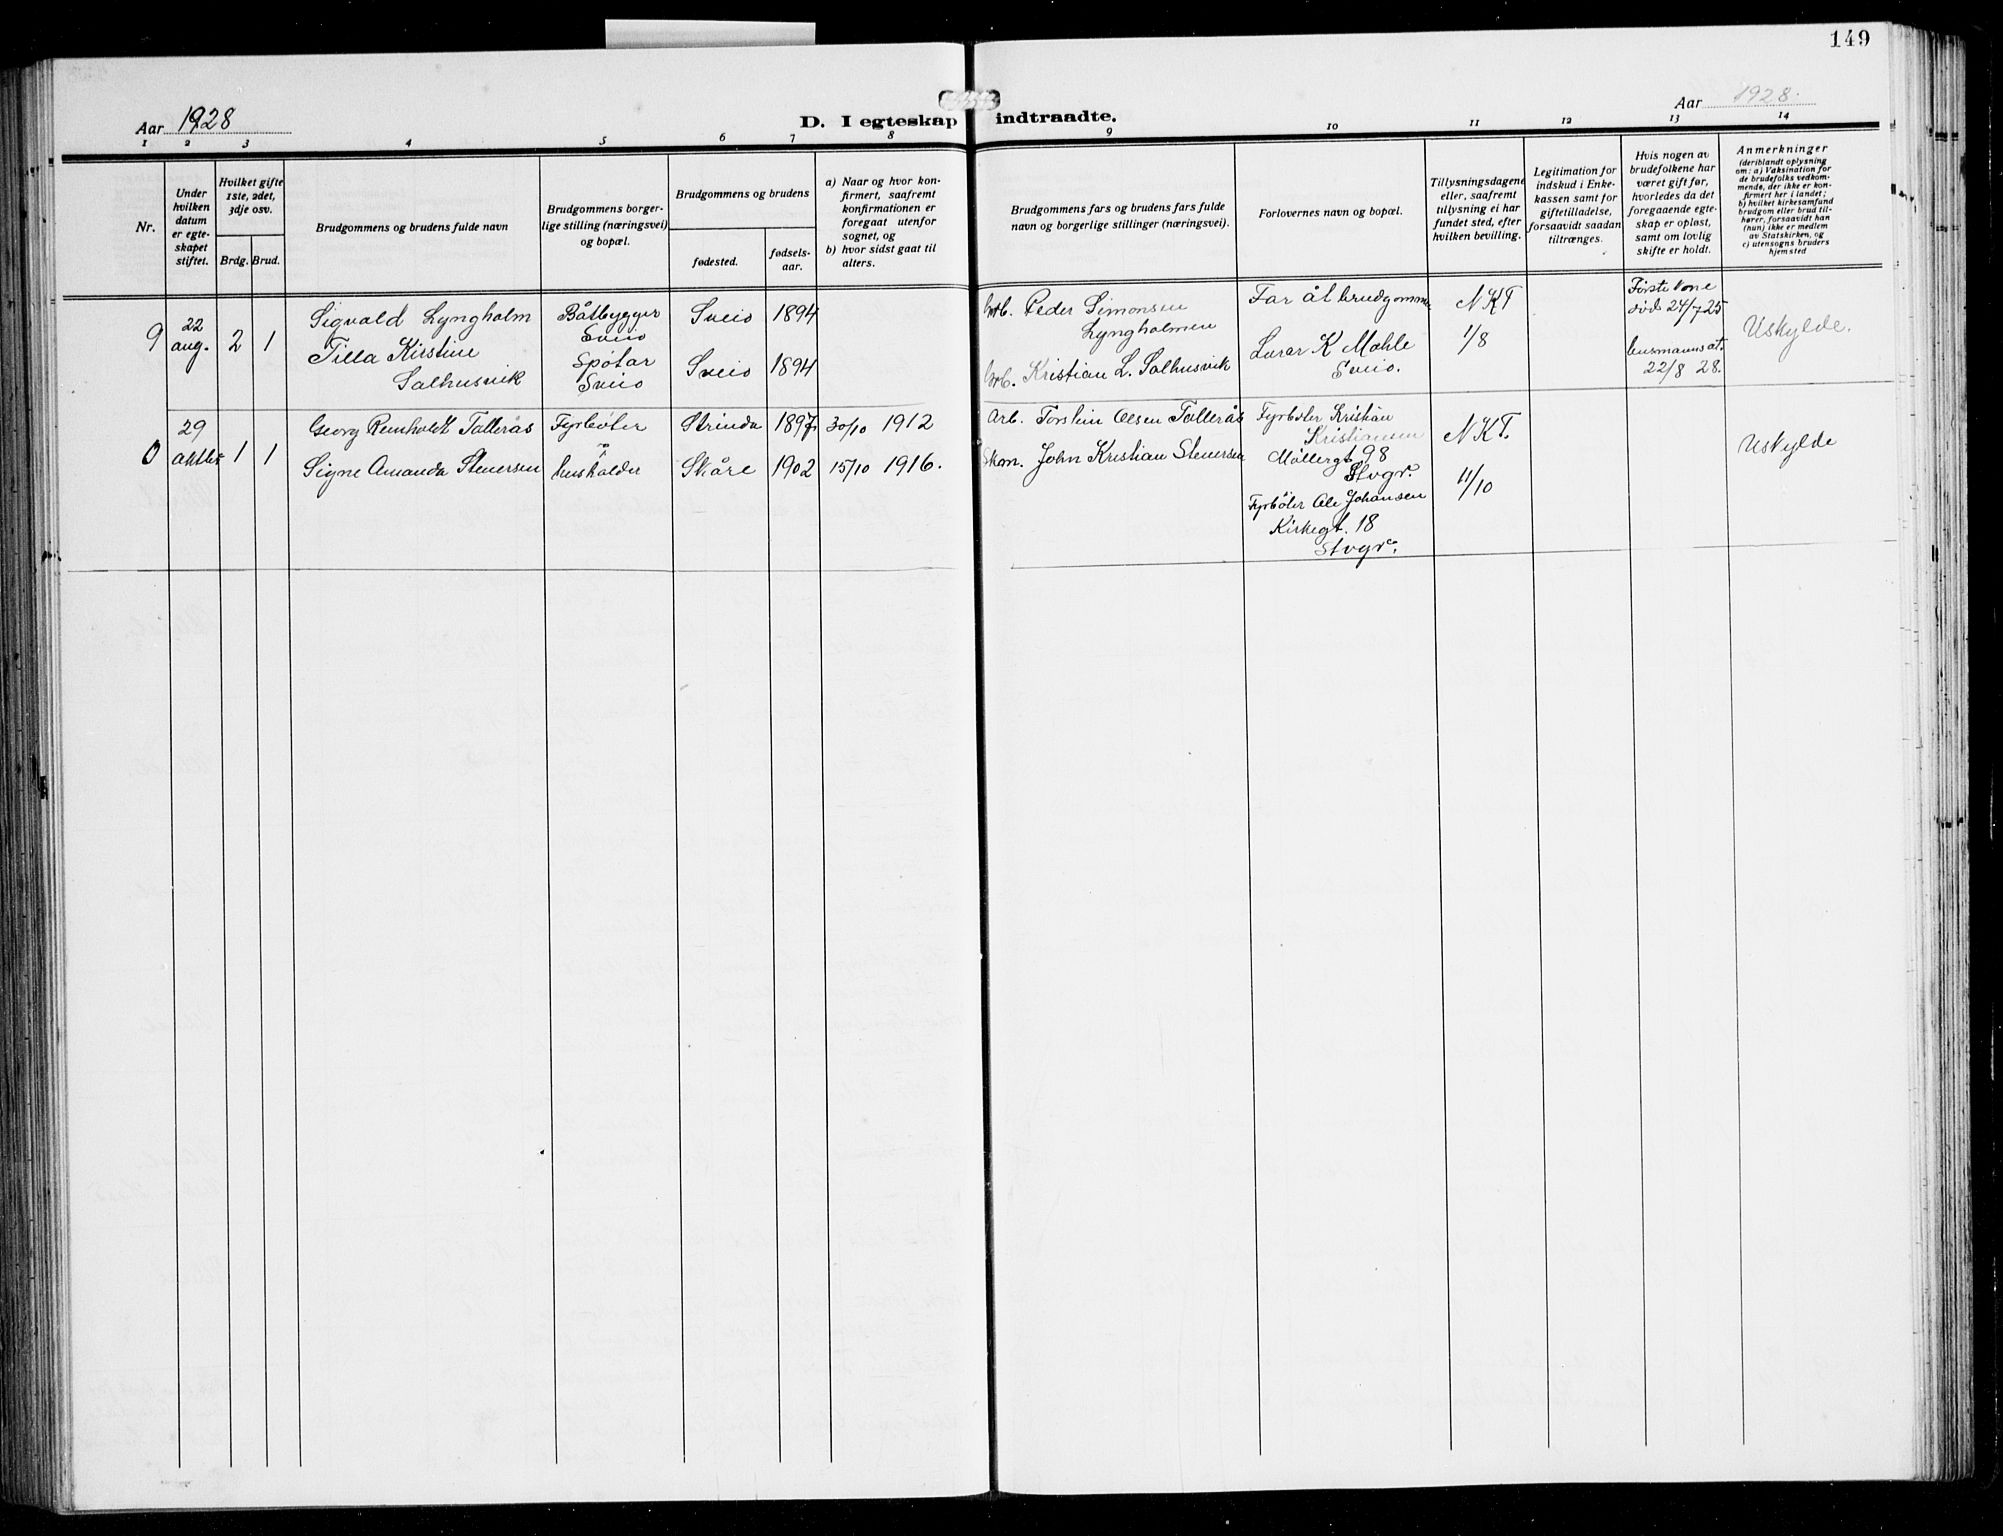 149
Aar 1928
D. I egteskap indtraadte.
Aar 1928.
1 2 3 4 5 6 7 8 9 10 11 12 13 14
Nr.
Under
hvilken
datum
er egte-
skapet
stiftet.
Hvilket gifte
1ste, 2det,
3dje osv.
Brdg. Brud.
Brudgommens og brudens fulde navn
Brudgommens borger-
lige stilling (næringsvei)
og bopæl.
Brudgommens og brudens
fødested.
fødsels-
aar.
a) Naar og hvor kon-
firmert, saafremt
konfirmationen er
foregaat utenfor
sognet, og
b) hvor sidst gaat til
alters.
Brudgommens fars og brudens fars fulde
navn og borgerlige stillinger (næringsvei).
Forlovernes navn og bopæl.
Tillysningsdagene
eller, saafremt
tillysning ei har
fundet sted, efter
hvilken bevilling.
Legitimation for
indskud i Enke-
kassen samt for
giftetilladelse,
forsaavidt saadan
tiltrænges.
Hvis nogen av
brudefolkene har
været gift før,
hvorledes da det
foregaaende egte-
skap er opløst,
samt om lovlig
skifte er holdt.
Anmerkninger
(deriblandt oplysning
om: a) Vaksination for
de brudefolks vedkom-
mende, der ikke er kon-
firmert her i landet;
b) hvilket kirkesamfund
brudgom eller brud til-
hører, forsaavidt han
(hun) ikke er medlem
av Statskirken, og
c) utensogns bruders
hjemsted
9
22
aug.
2 1
Sigvald Lyngholm
Tilla Kirstine
Salhusvik
Båtbygger
Sveio
Spøtar
Sveio
Sveio 1894
Sveio 1894
Peder Simonsen
Lyngholmen
Kristian L. Salhusvik
Far åt brudgommen
K Mæhle
Sveio.
N K T
1/8
Første kone
død 24/7 25
22/8 28.
Uskylde.
0
29
oktbr
1 1
Georg Reinholdt Tallerås
Signe Amanda Stenersen
Fyrbøter
husholder
Strinda 1897
Skåre 1902
30/10 1912
15/10 1916.
Arb. Torstein Olsen Tallerås
Skom. John Kristian Stenersen
Fyrbøter Kristian
Kristiansen
Møllergt 98
Stvgr.
Fyrbøter Ole Johansen
Kirkegt. 18
Stvgr.
N K T.
11/10
Uskylde